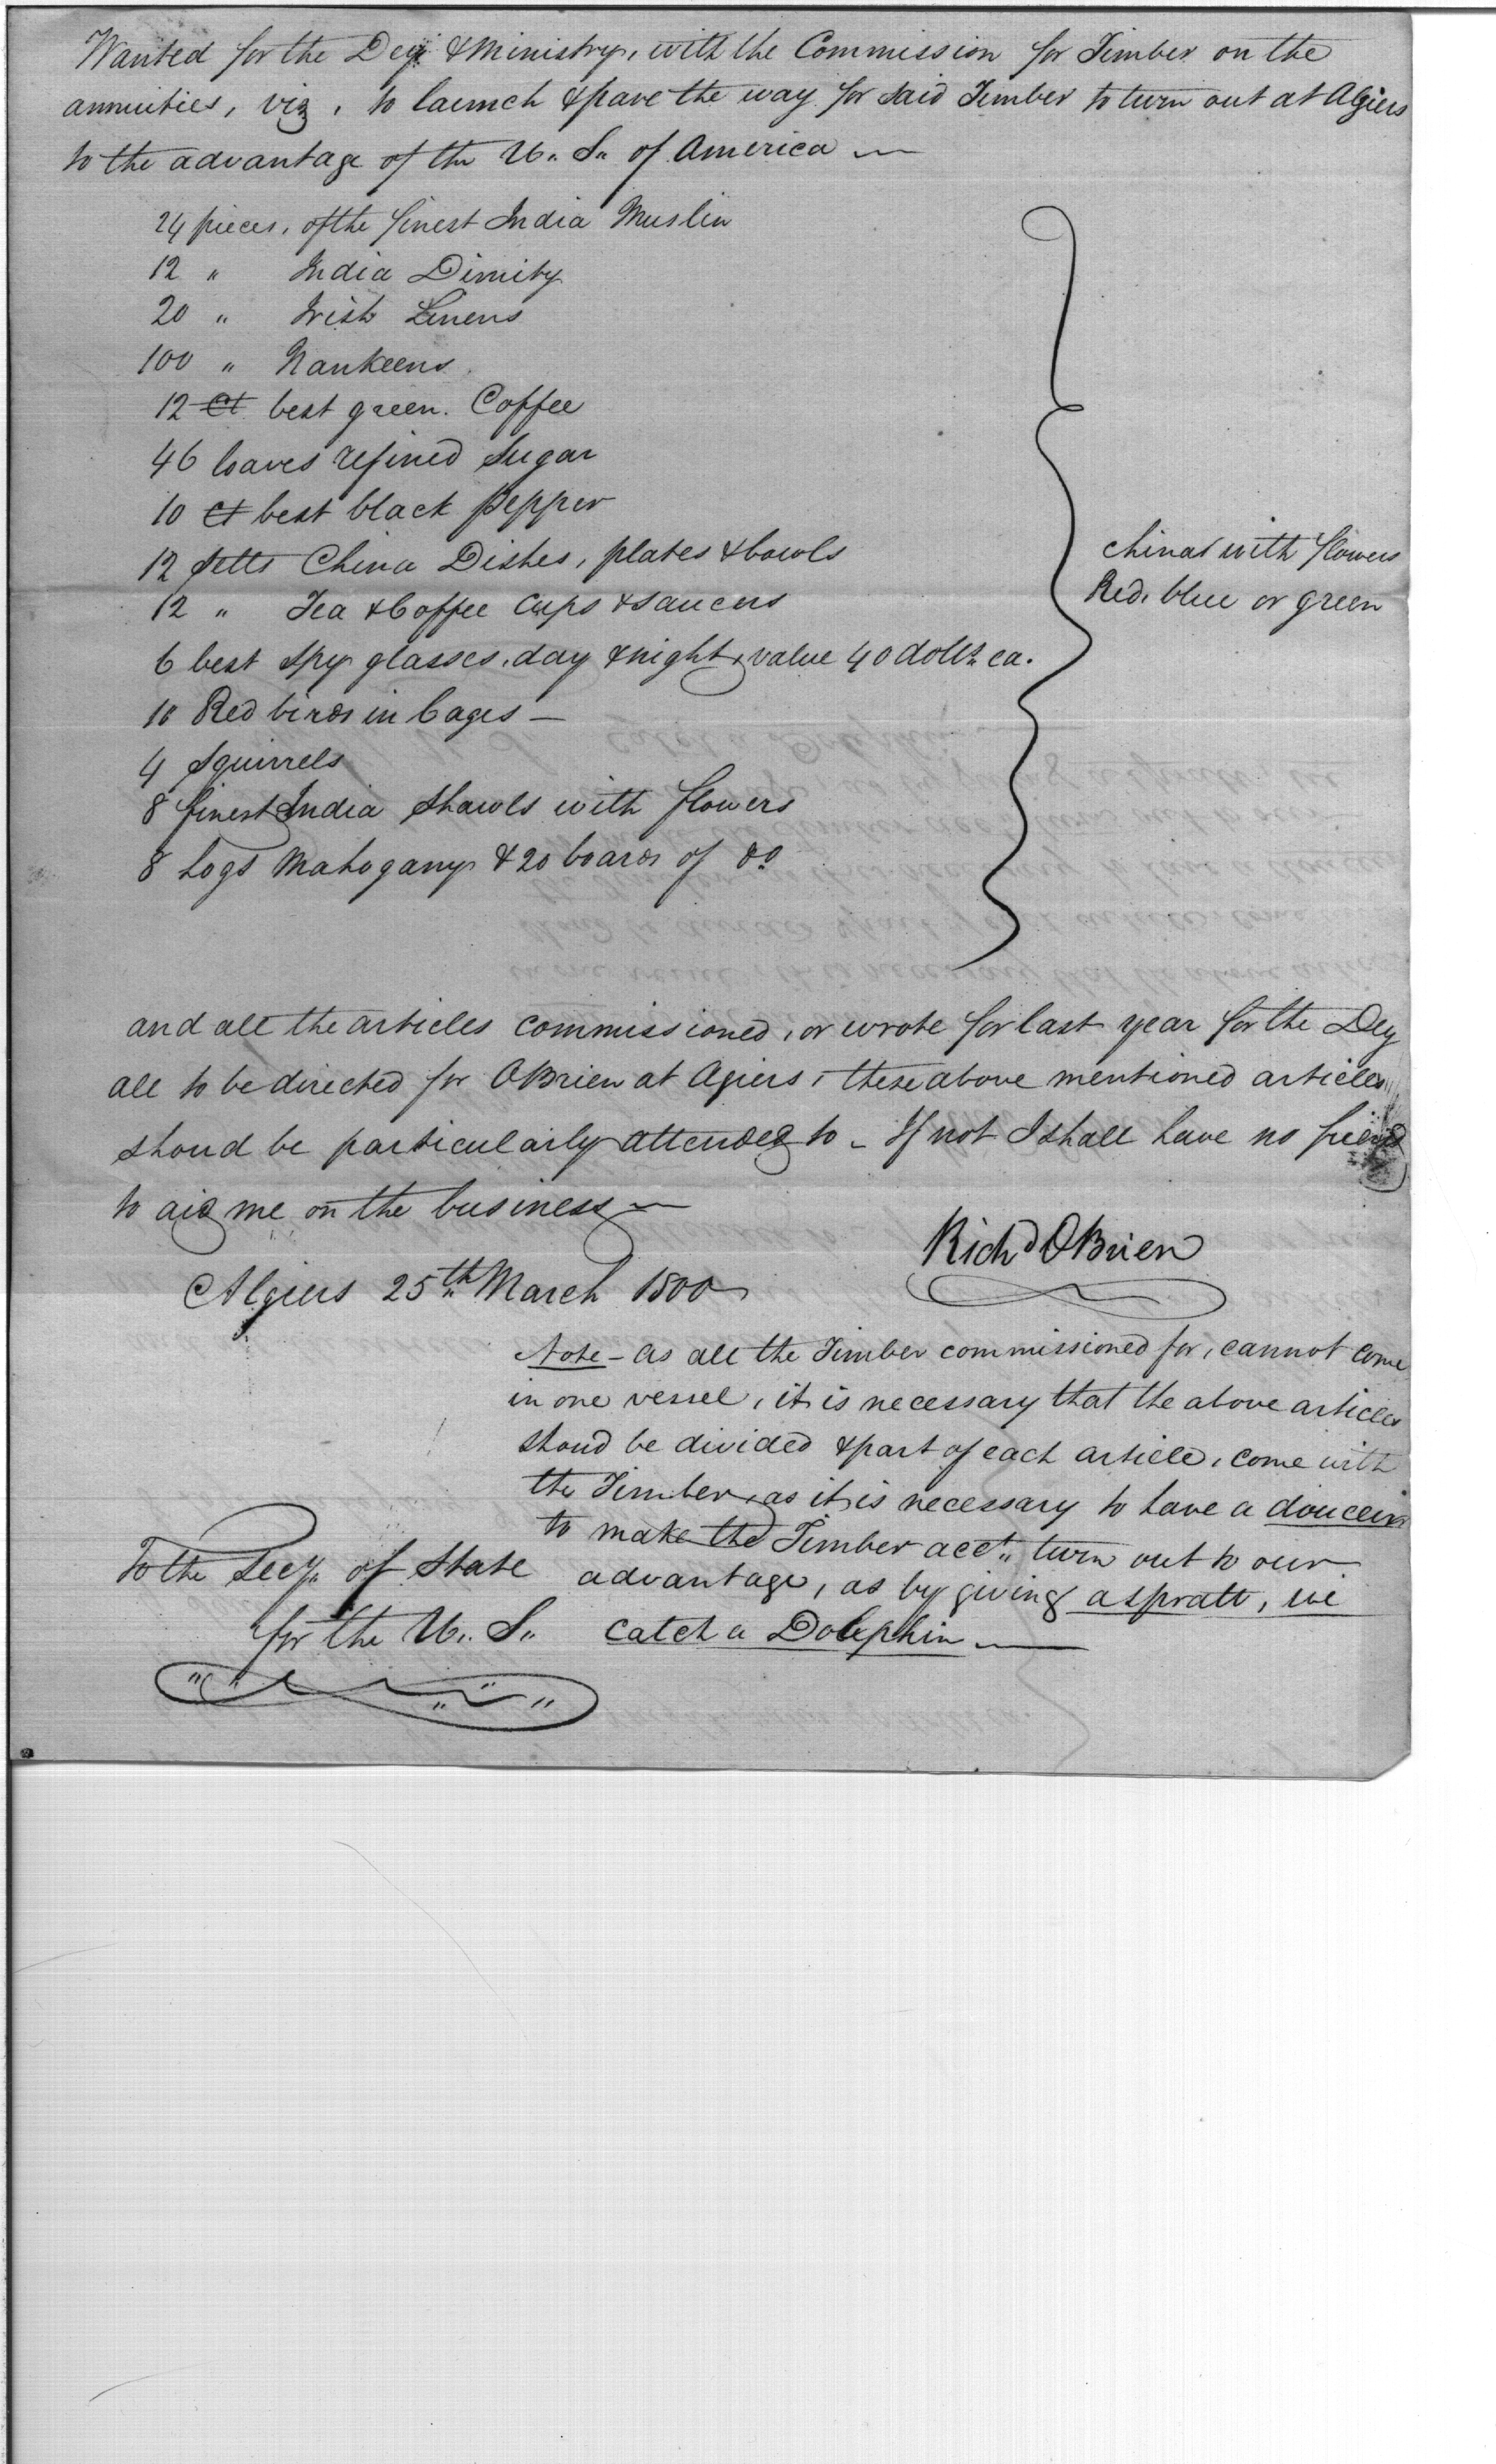 Wanted for the Dey & Ministry, with the Commission for Timber on the
annuities, viz, to launch & pave the way for said Timber to turn out at Algiers
to the advantage of the U. S. of America —
24 pieces, of the finest India Muslin
12 " India Dimity
20 " Irish Linens
100 " Nankeens
12 Ct best green Coffee
46 loaves refined Sugar
10 Ct best black pepper
12 setts China Dishes, plates & bowls
12 " Tea & Coffee Cups & saucers
china with flowers
Red, blue or green
6 best spy glasses, day & night, value 40 dolls ea.
10 Red birds in Cages —
4 Squirrels
8 finest India Shawls with flowers
8 Logs Mahogany & 20 boards of do
and all the articles commissioned, or wrote for last year for the Dey
all to be directed for OBrien at Agiers, these above mentioned articles
shoud be particularly attended to - If not I shall have no friend
to aid me on the business —
Richd OBrien
Algiers 25th March 1800
Note - as all the Timber commissioned for, cannot come
in one vessel, it is necessary that the above articles
shoud be divided & part of each article, come with
the Timber, as it is necessary to have a douceur
to make the Timber acct. turn out to our
advantage, as by giving a spratt, we
catch a Dolphin —
To the Secy. of State
for the U. S.